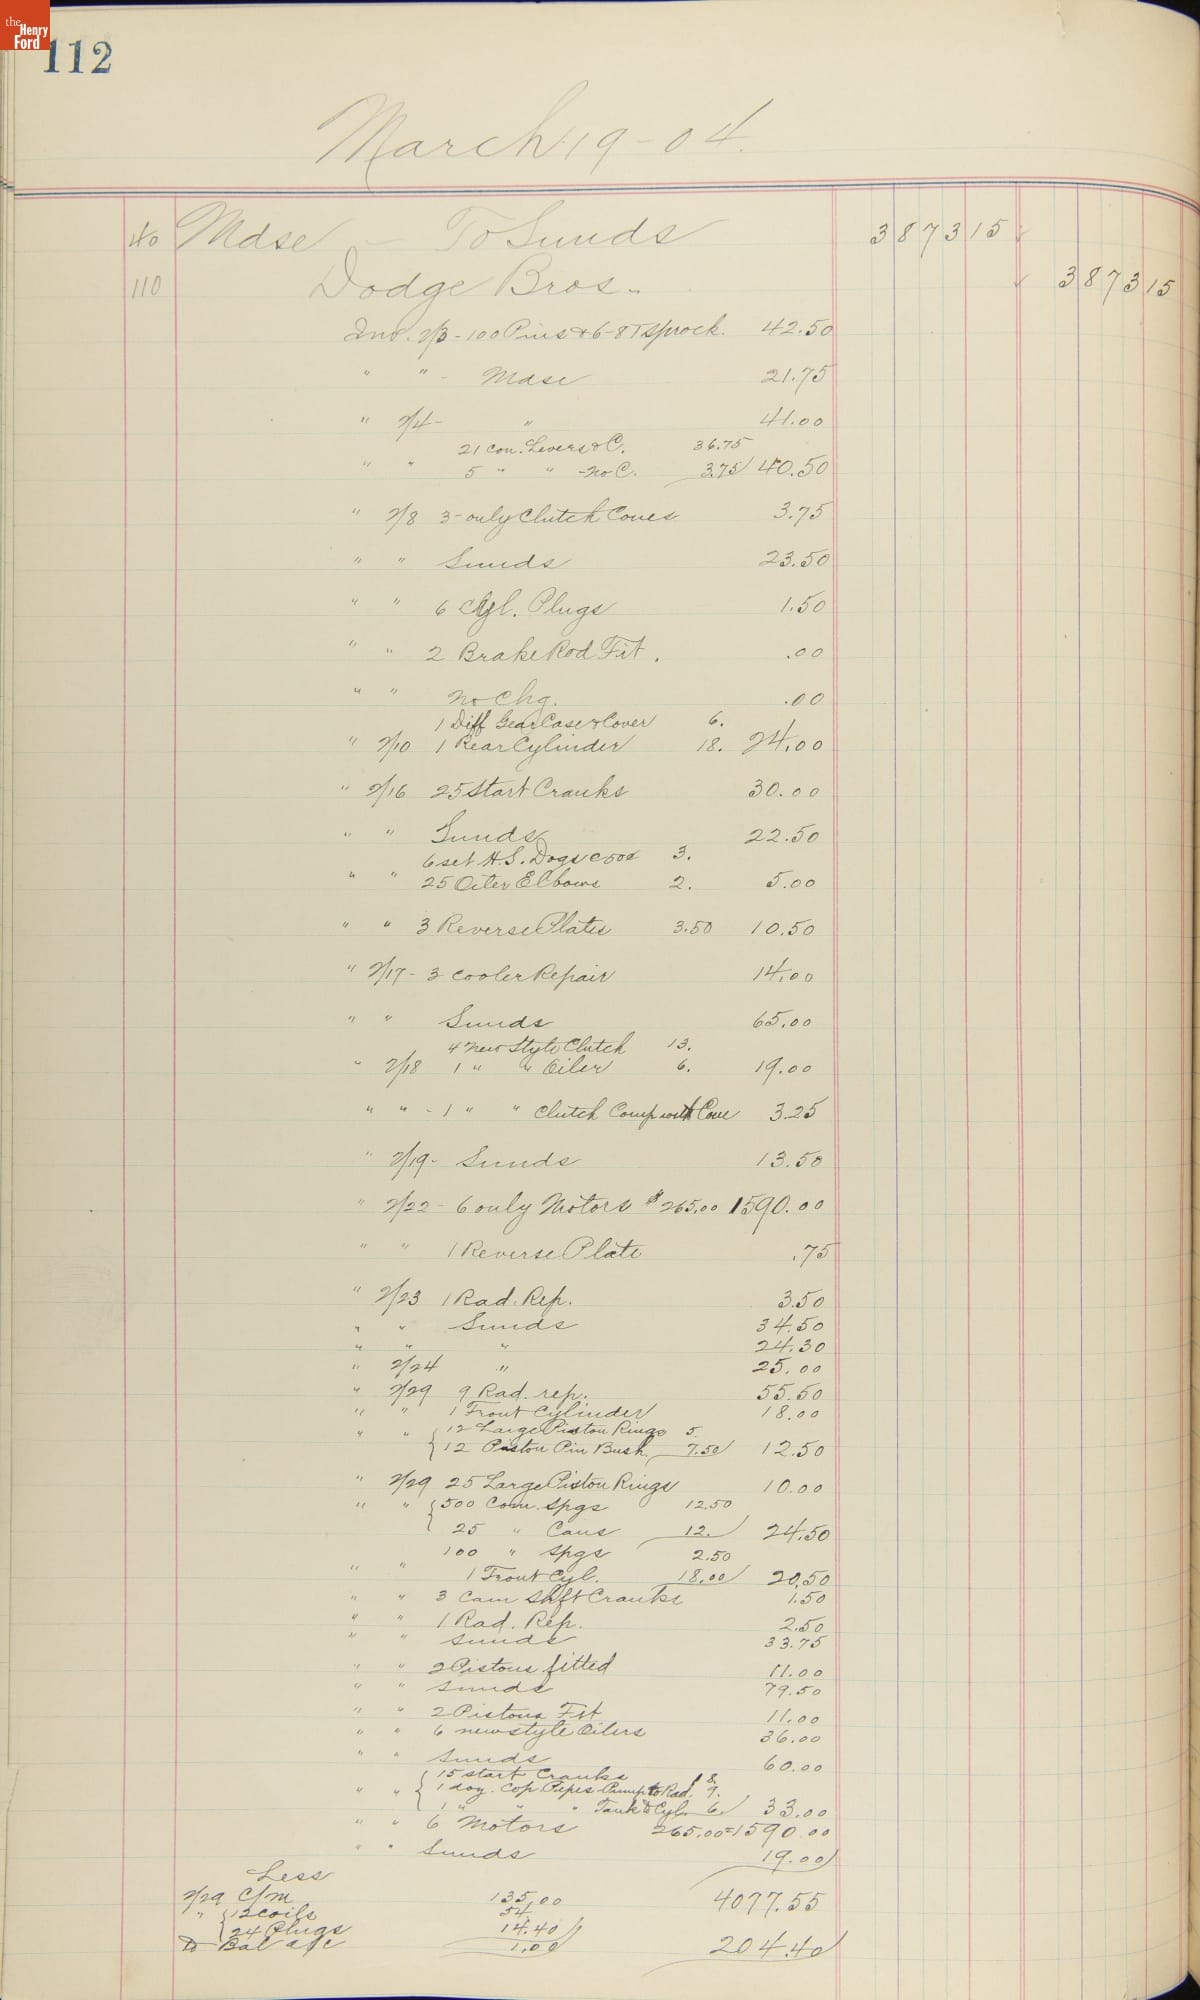 the Henry Ford
112
March 19-04.
40 Mdse - To Sunds 3873 15
110 Dodge Bros. 3873 15
Inv. 2/3 - 100 Pins & 6-8T Sprock. 42.50
" " - Mdse 21.75
" 2/4 - " 41.00
21 Con. Levers & C. 36.75
" " 5 " " - no C. 3.75 40.50
" 2/8 3 - only Clutch Cones 3.75
" " Sunds 23.50
" " 6 Cyl. Plugs 1.50
" " 2 Brake Rod Fit. .00
" " No Chg. .00
1 Diff Gear Case & Cover 6.
" 2/10 1 Rear Cylinder 18. 24.00
" 2/16 25 Start Cranks 30.00
" " Sunds 22.50
6 set H.S. Dogs c 50¢ 3.
" " 25 Oiler Elbows 2. 5.00
" " 3 Reverse Plates 3.50 10.50
" 2/17 - 3 Cooler Repair 14.00
" " Sunds 65.00
4 New Style Clutch 13.
" 2/18 1 " " Oiler 6. 19.00
" " - 1 " " Clutch Comp with Cone 3.25
" 2/19 - Sunds 13.50
" 2/22 - 6 only Motors $265.00 1590.00
" " 1 Reverse Plate .75
" 2/23 1 Rad. Rep. 3.50
" " Sunds 34.50
" " " 24.30
" 2/24 " 25.00
" 2/29 9 Rad. rep. 55.50
" " 1 Front Cylinder 18.00
12 Large Piston Rings 5.
" " 12 Piston Pin Bush. 7.50 12.50
" 2/29 25 Large Piston Rings 10.00
" " 500 Com. Spgs 12.50
25 " Cans 12. 24.50
100 " Spgs 2.50
" " 1 Front Cyl. 18.00 20.50
" " 3 Cam Shft Cranks 1.50
" " 1 Rad. Rep. 2.50
" " Sunds 33.75
" " 2 Pistons fitted 11.00
" " Sunds 79.50
" " 2 Pistons Fit 11.00
" " 6 new style Oilers 36.00
" " Sunds 60.00
15 Start Cranks 18.
" " 1 doz. Cop. Pipes Pump to Rad. 9.
1 " " " Tank to Cyl. 6. 33.00
" " 6 Motors 265.00 = 1590.00
" " Sunds 19.00
Less
2/29 C/M 135.00 4077.55
" 12 Coils 54.
24 Plugs 14.40
To Bal a/c 1.00 204.40